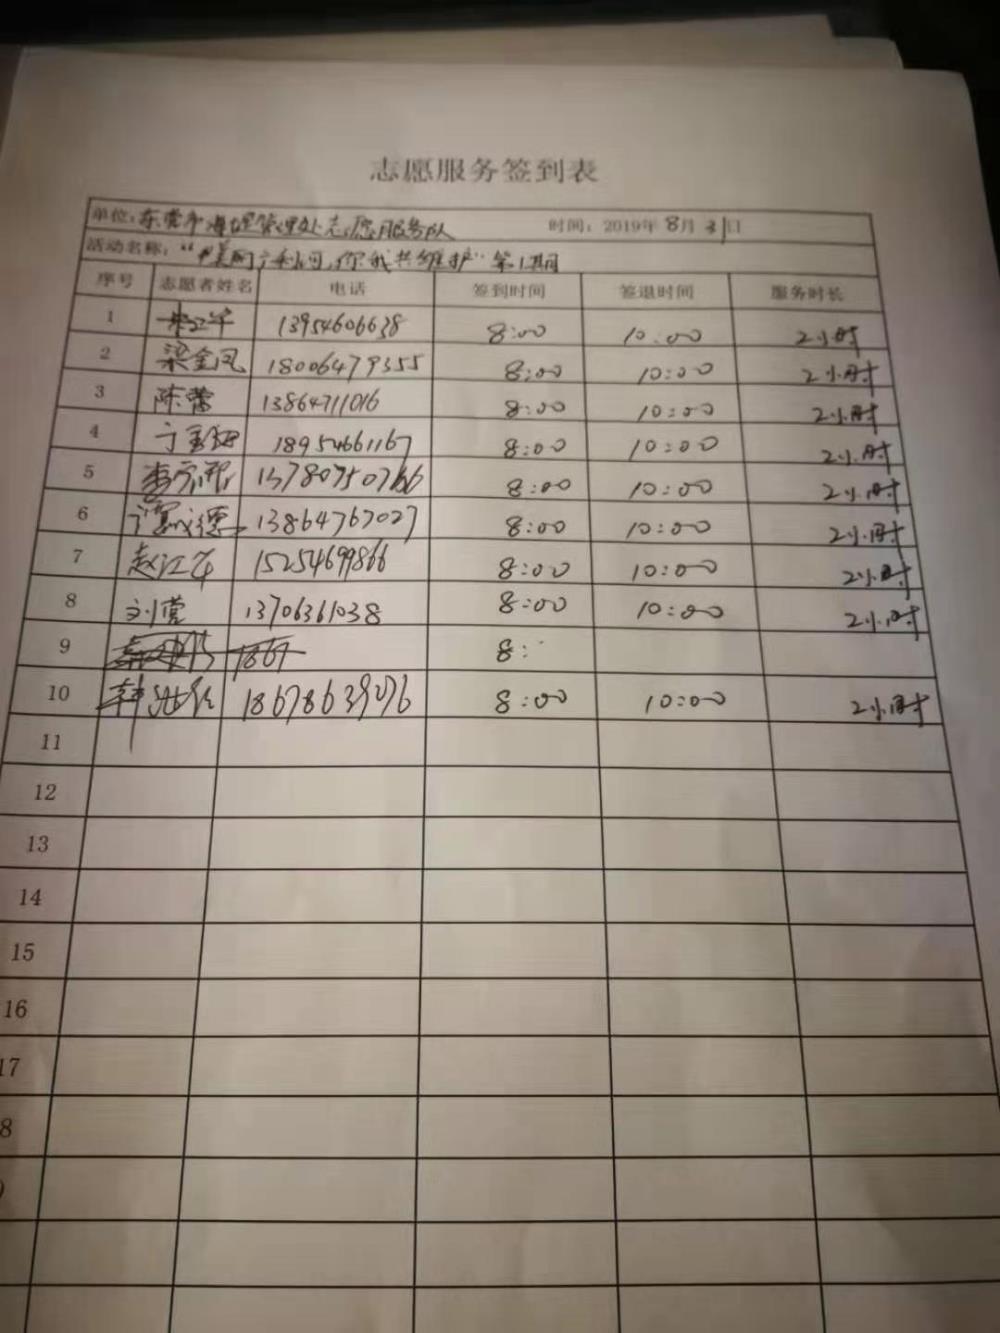 志愿服务签到表
单位：东营市海堤管理处志愿服务队 时间：2019年8月31日
活动名称："美丽广利河，你我共维护"第1期
序号 志愿者姓名 电话 签到时间 签退时间 服务时长
1 13954606638 8:00 10:00 2小时
2 梁金凤 18006479355 8:00 10:00 2小时
3 陈蕾 13864711016 8:00 10:00 2小时
4 18954661167 8:00 10:00 2小时
5 8:00 10:00 2小时
6 13864767027 8:00 10:00 2小时
7 赵江华 15254699866 8:00 10:00 2小时
8 刘营 13706361038 8:00 10:00 2小时
9 1867 8:
10 18678639076 8:00 10:00 2小时
11
12
13
14
15
16
17
8